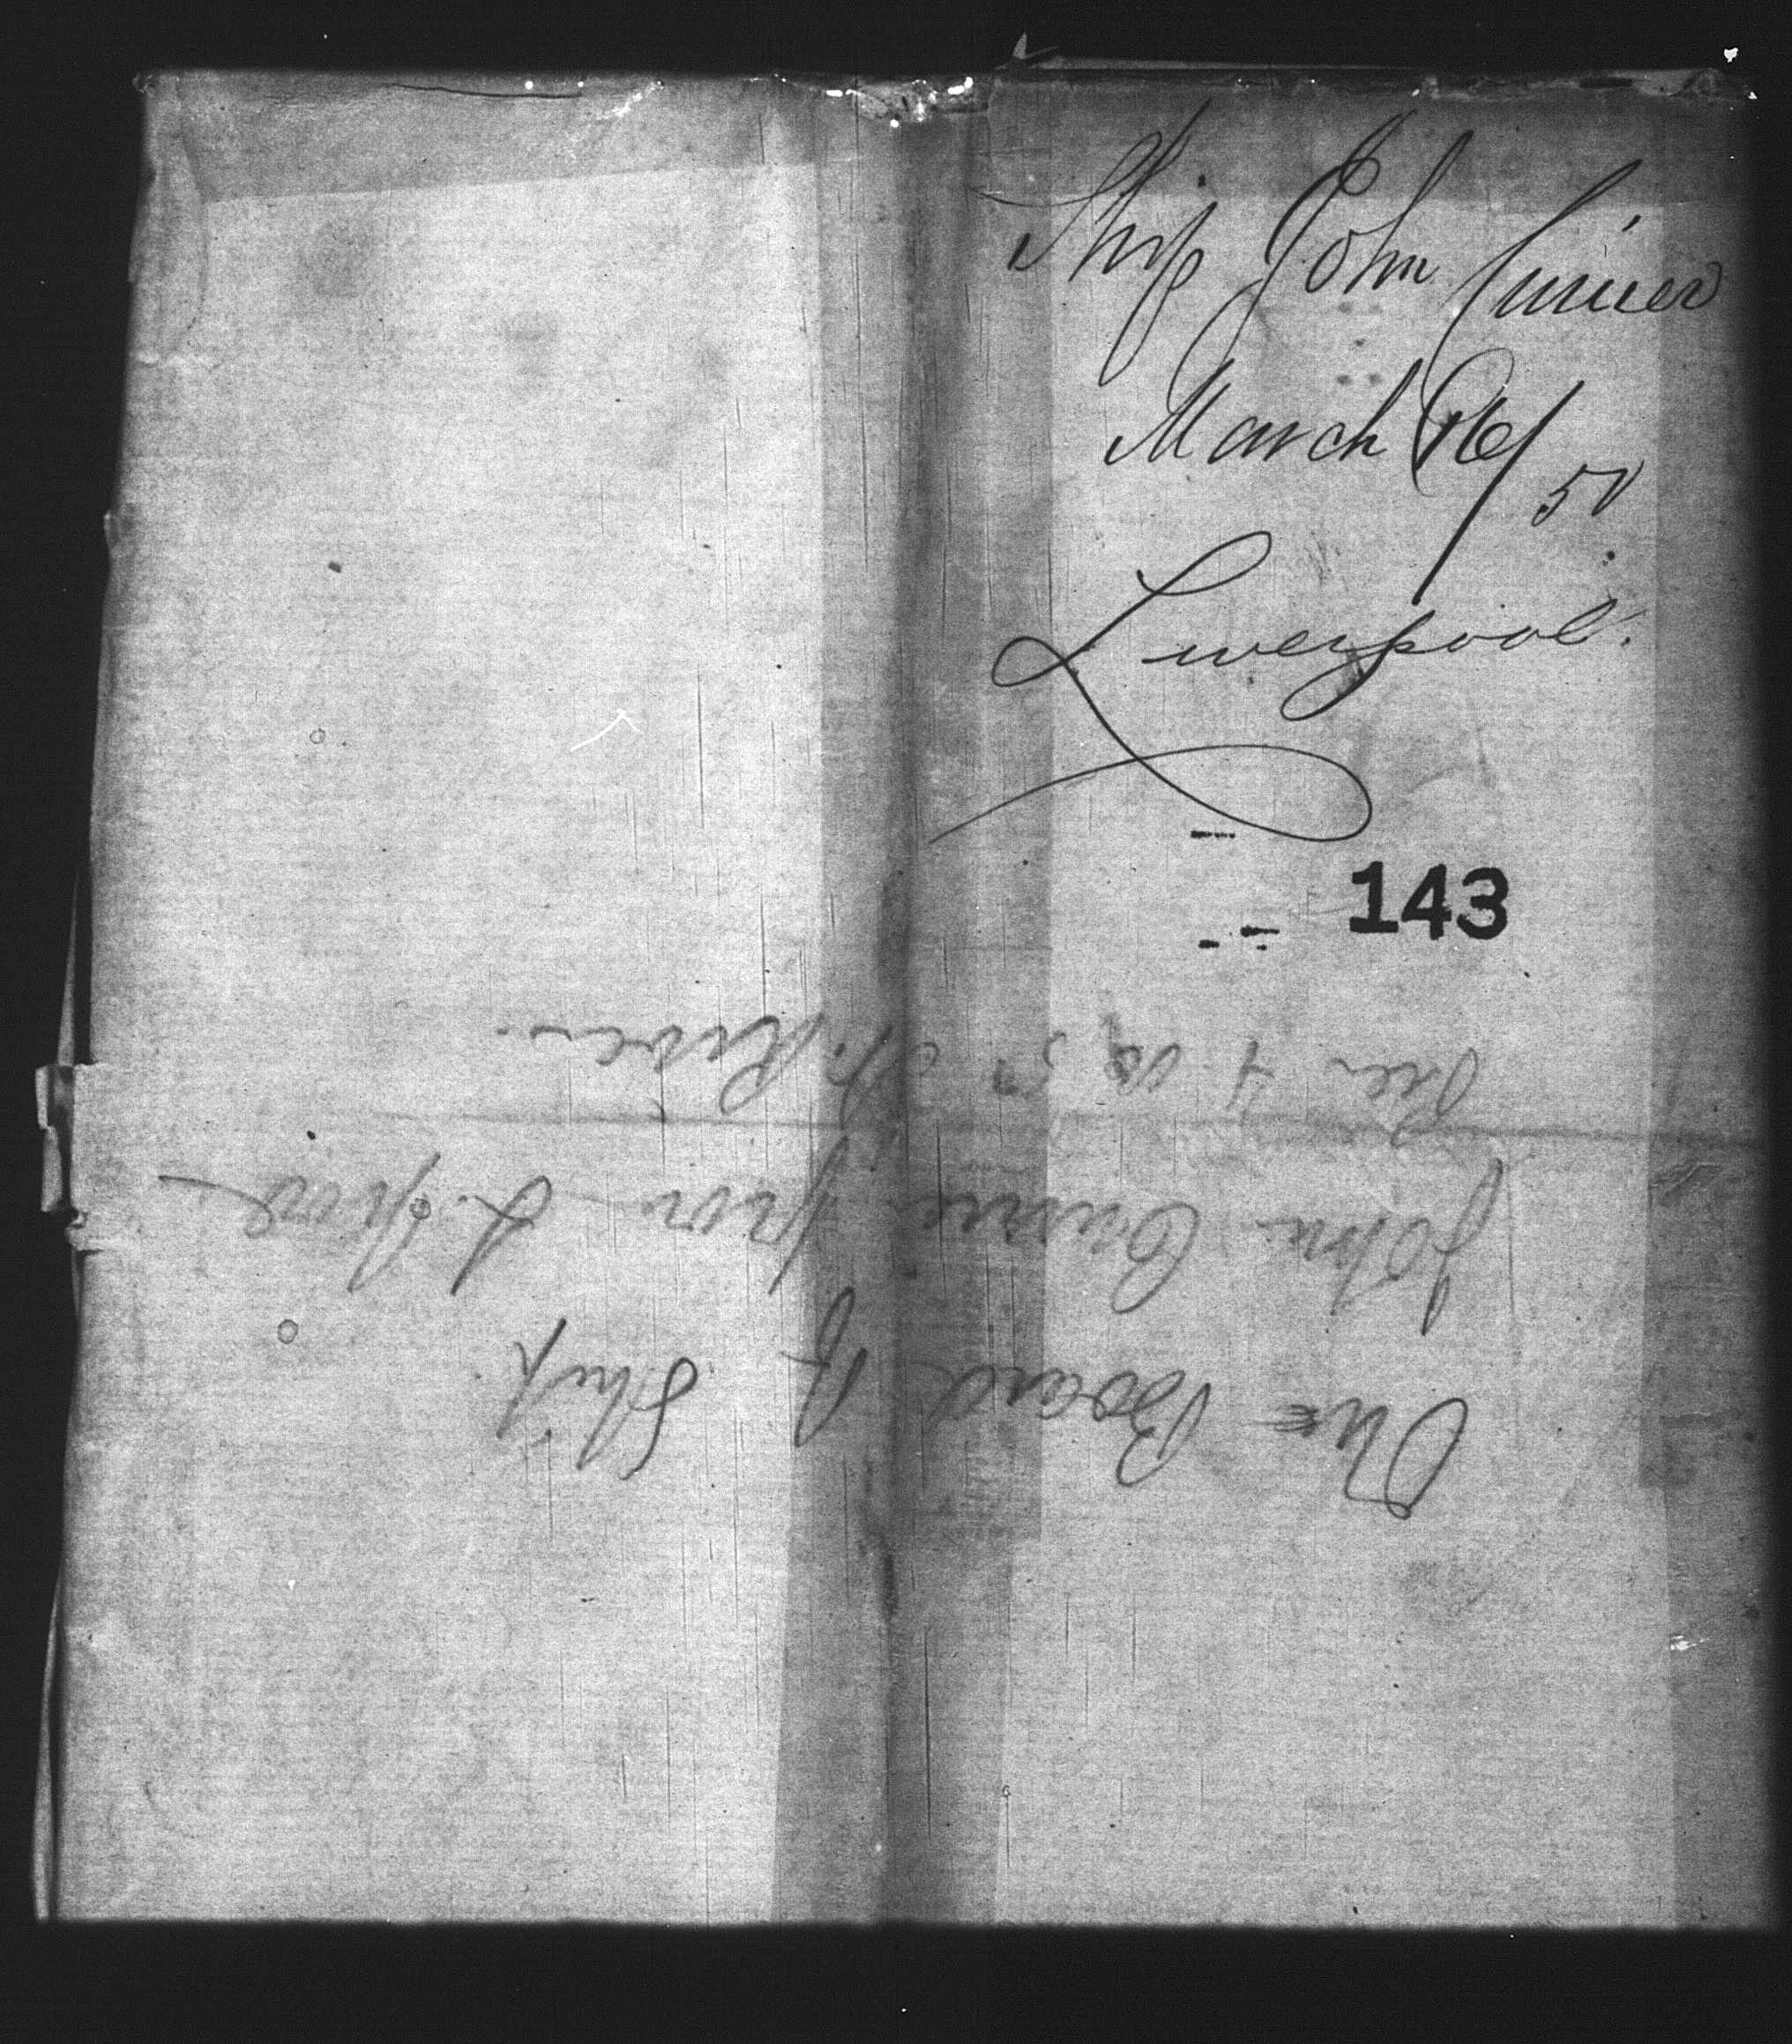 Ship John Currier
March 16/50
Liverpool.
143
One Board of Ship
John Currier from L. pool